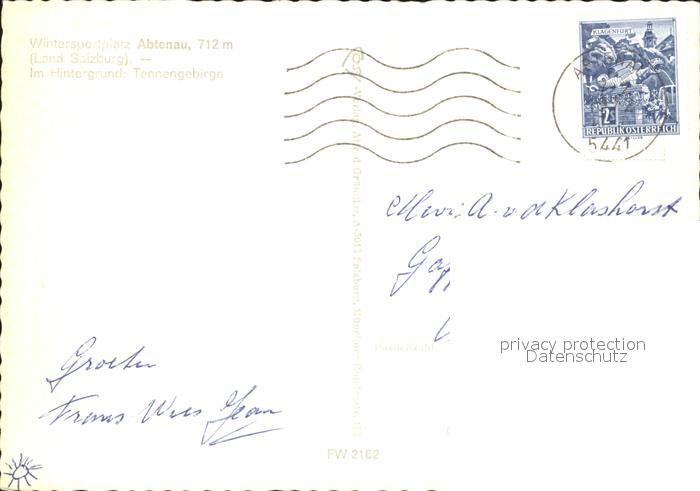 Wintersportplatz Abtenau, 712 m
(Land Salzburg). —
Im Hintergrund: Tennengebirge
KLAGENFURT
2S
REPUBLIK ÖSTERREICH
5441
A. v d Klashorst
Postleitzahl
privacy protection
Datenschutz
Groeten
Frans Wies Jean
FW 2162